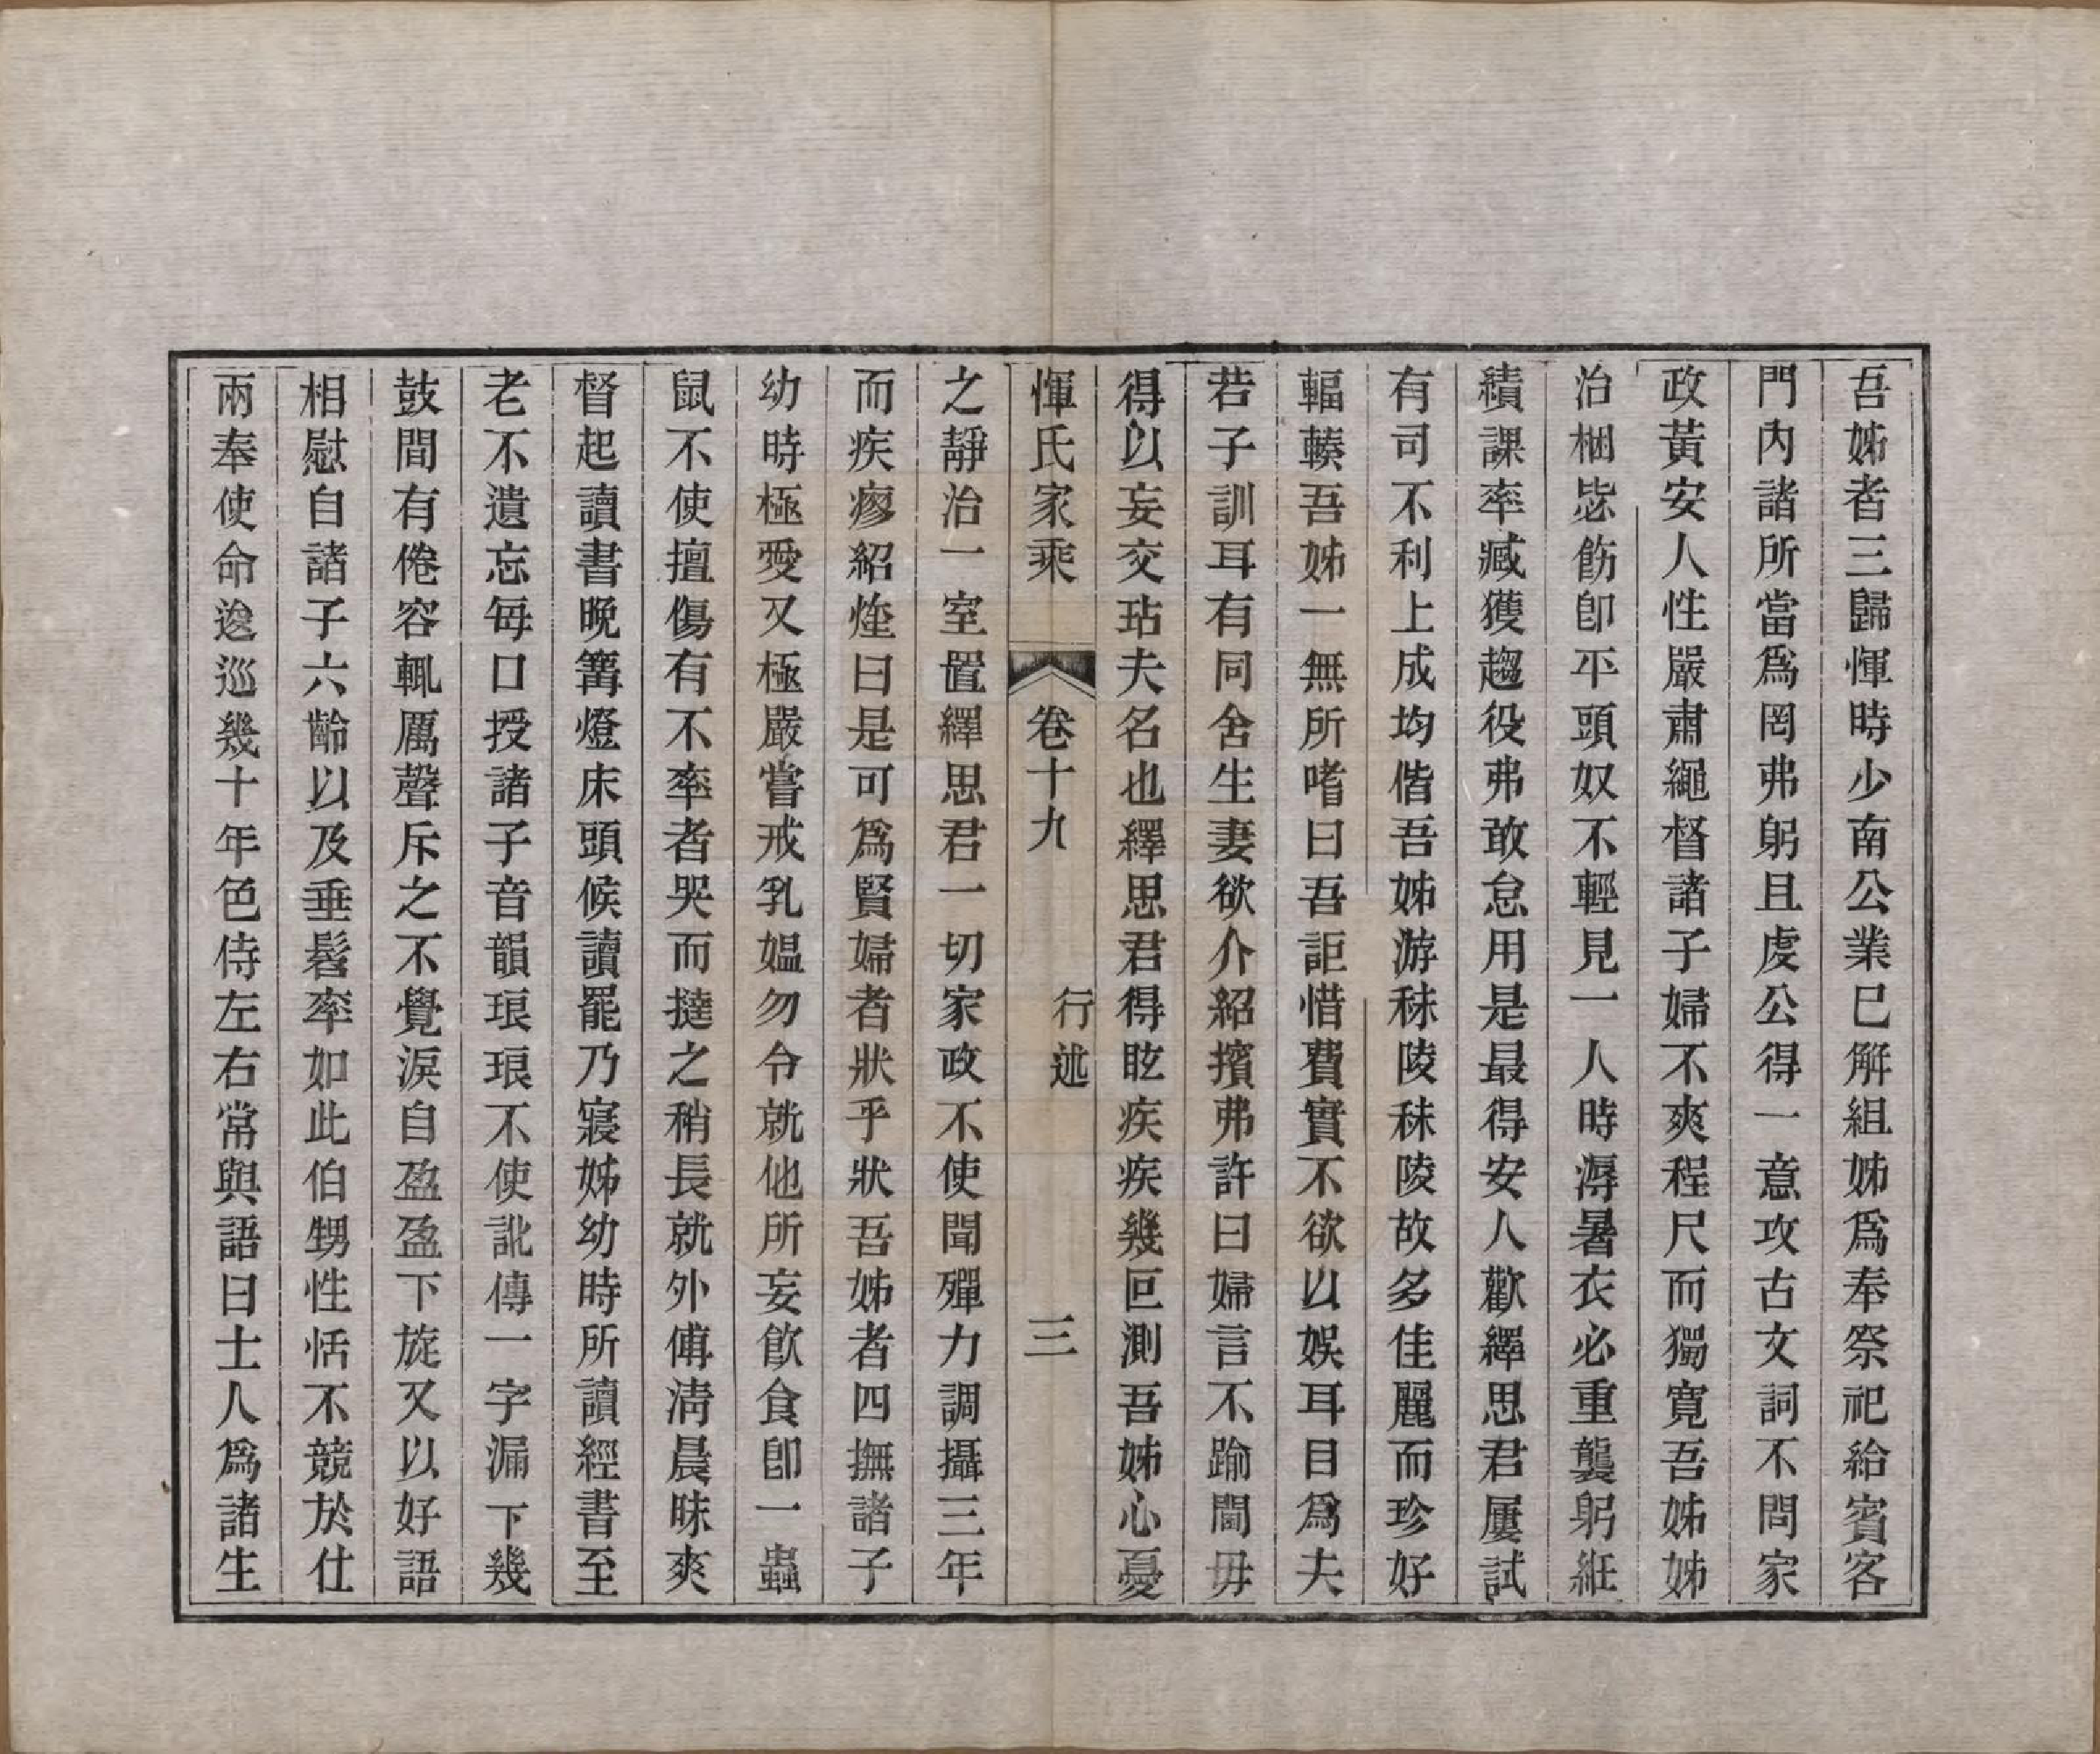 吾姊者三歸惲時少南公業已解組姊爲奉祭祀給賓客
門內諸所當爲罔弗躬且虔公得一意攻古文詞不問家
政黃安人性嚴肅繩督諸子婦不爽程尺而獨寬吾姊姊
治梱毖飭卽平頭奴不輕見一人時溽暑衣必重襲躬絍
績課率臧獲趨役弗敢怠用是最得安人歡繹思君屢試
有司不利上成均偕吾姊游秣陵秣陵故多佳麗而珍好
輻輳吾姊一無所嗜曰吾詎惜費實不欲以娛耳目爲夫
若子訓耳有同舍生妻欲介紹擯弗許曰婦言不踰閫毋
得以妄交玷夫名也繹思君得眩疾疾幾叵測吾姊心憂
惲氏家乘 卷十九 行述 三
之靜治一室置繹思君一切家政不使聞殫力調攝三年
而疾瘳紹煃曰是可爲賢婦者狀乎狀吾姊者四撫諸子
幼時極愛又極嚴嘗戒乳媼勿令就他所妄飮食卽一蟲
鼠不使擅傷有不率者哭而撻之稍長就外傅淸晨昧爽
督起讀書晩篝燈床頭候讀罷乃寢姊幼時所讀經書至
老不遺忘每口授諸子音韻琅琅不使訛傳一字漏下幾
鼓間有倦容輒厲聲斥之不覺淚自盈盈下旋又以好語
相慰自諸子六齡以及垂髫率如此伯甥性恬不競於仕
兩奉使命逡巡幾十年色侍左右常與語曰士人爲諸生